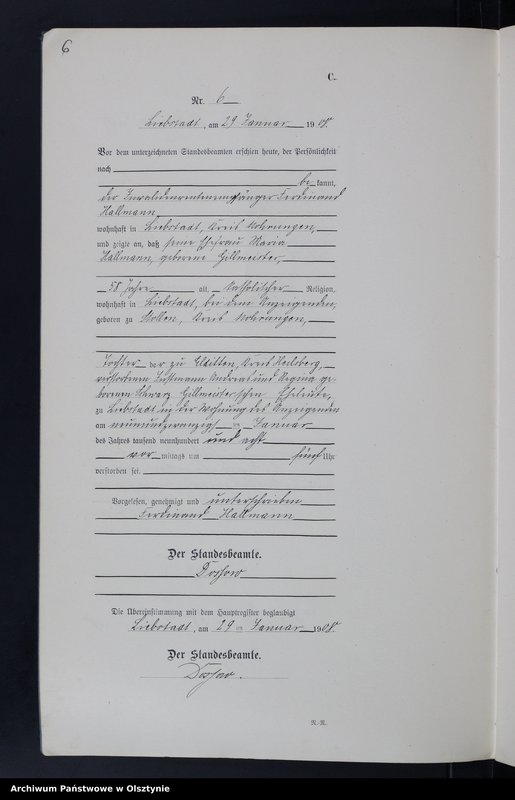 6
C.
Nr. 6
Liebstadt, am 29 Januar 1908.
Vor dem unterzeichneten Standesbeamten erschien heute, der Persönlichkeit
nach
be kannt,
der Invalidenrentenempfänger Ferdinand
Hallmann,
wohnhaft in Liebstadt, Kreis Mohrungen,
und zeigte an, daß seine Ehefrau Maria
Hallmann, geborene Gillmeister,
58 Jahre alt, Katholischer Religion,
wohnhaft in Liebstadt, bei dem Anzeigenden,
geboren zu Stollen, Kreis Mohrungen,
Tochter der zu Elditten, Kreis Heilsberg,
verstorbenen Andreas und Regina ge-
borenen Schwarz Gillmeister'schen Eheleute,
zu Liebstadt in der Wohnung des Anzeigenden
am neunundzwanzig ten Januar
des Jahres tausend neunhundert und acht
vor mittags um fünf Uhr
verstorben sei.
Vorgelesen, genehmigt und unterschrieben
Ferdinand Hallmann
Der Standesbeamte.
Die Übereinstimmung mit dem Hauptregister beglaubigt
Liebstadt, am 29 ten Januar 1908.
Der Standesbeamte.
N.-R.
Archiwum Państwowe w Olsztynie